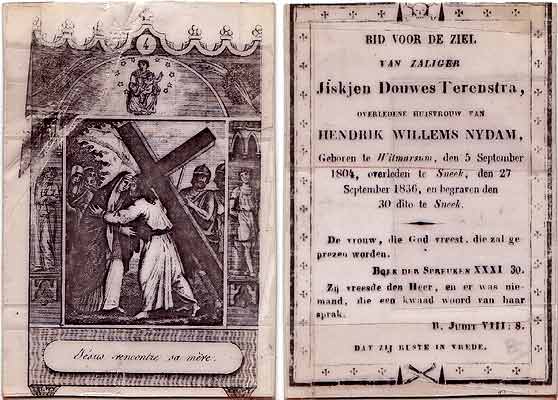 4
Jésus rencontre sa mère.
BID VOOR DE ZIEL
VAN ZALIGER
Jiskjen Douwes Terenstra,
OVERLEDENE HUISVROUW VAN
HENDRIK WILLEMS NYDAM,
Geboren te Witmarsum, den 5 September
1804, overleden te Sneek, den 27
September 1836, en begraven den
30 dito te Sneek.
De vrouw, die God vreest, die zal ge-
prezen worden.
BOEK DER SPREUKEN XXXI 30.
Zij vreesde den Heer, en er was nie-
mand, die een kwaad woord van haar
sprak.
B. JUDIT VIII: 8.
DAT ZIJ RUSTE IN VREDE.